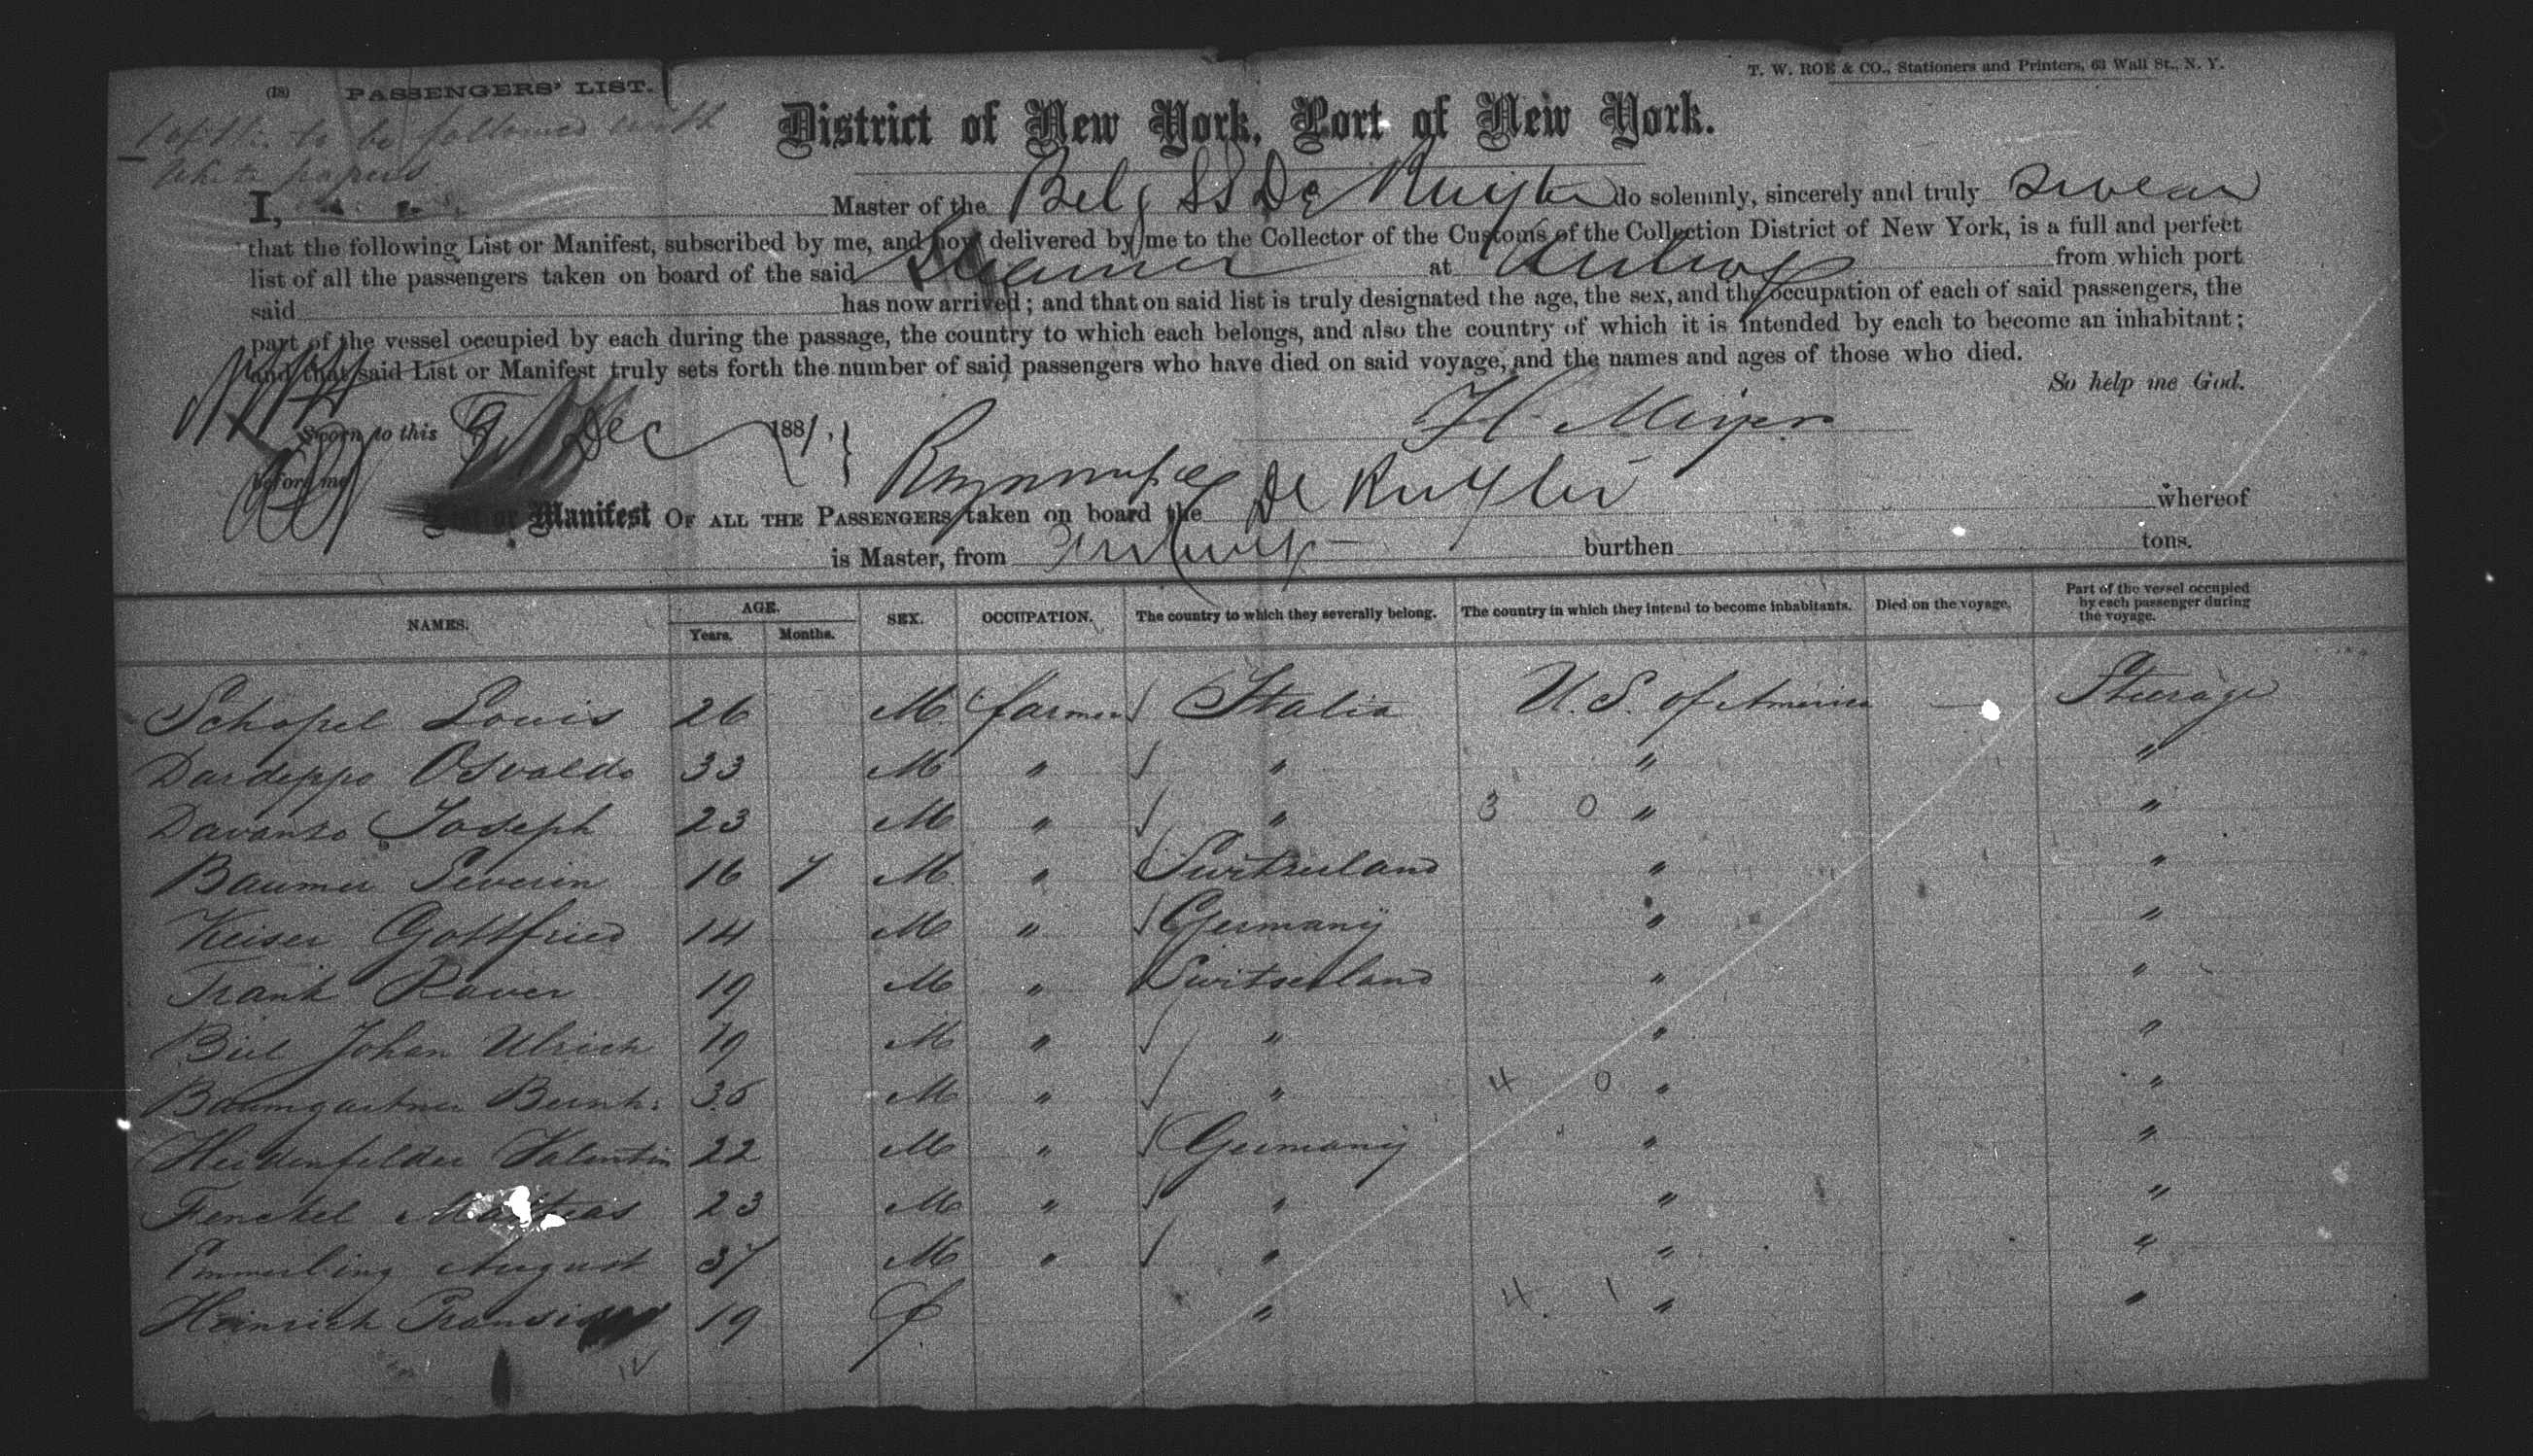 T. W. ROE & CO., Stationers and Printers, 63 Wall St., N. Y.
(18) PASSENGERS' LIST.
to be followed with
White papers
District of New York, Port of New York.
I, Master of the Belg SS De Ruyter do solemnly, sincerely and truly swear
that the following List or Manifest, subscribed by me, and now delivered by me to the Collector of the Customs of the Collection District of New York, is a full and perfect
list of all the passengers taken on board of the said Steamer at Antwerp from which port
said has now arrived; and that on said list is truly designated the age, the sex, and the occupation of each of said passengers, the
part of the vessel occupied by each during the passage, the country to which each belongs, and also the country of which it is intended by each to become an inhabitant;
and that said List or Manifest truly sets forth the number of said passengers who have died on said voyage, and the names and ages of those who died.
So help me God.
Sworn to this 9 Dec 1881, H. Meyer
before me
List or Manifest OF ALL THE PASSENGERS taken on board the De Ruyter whereof
is Master, from Antwerp burthen tons.
NAMES. AGE. Years. Months. SEX. OCCUPATION. The country to which they severally belong. The country in which they intend to become inhabitants. Died on the voyage. Part of the vessel occupied by each passenger during the voyage.
Schopel Louis 26 M farmer Italia U. S. of America — Steerage
Dardeppo Osvaldo 33 M " " " "
Davanzo Joseph 23 M " " 3 0 " "
Baumer Severin 16 7 M " Switzerland " "
Keiser Gottfried 14 M " Germany " "
Frank Raver 19 M " Switserland " "
Biel Johan Ulrich 19 M " " " "
Baumgartner Bernh. 36 M " " 4 0 " "
Heidenfelder Valentin 22 M " Germany " "
Fenckel Mathias 23 M " " " "
Emmerling August 37 M " " " "
Heinrich 19 f " 4 1 " "